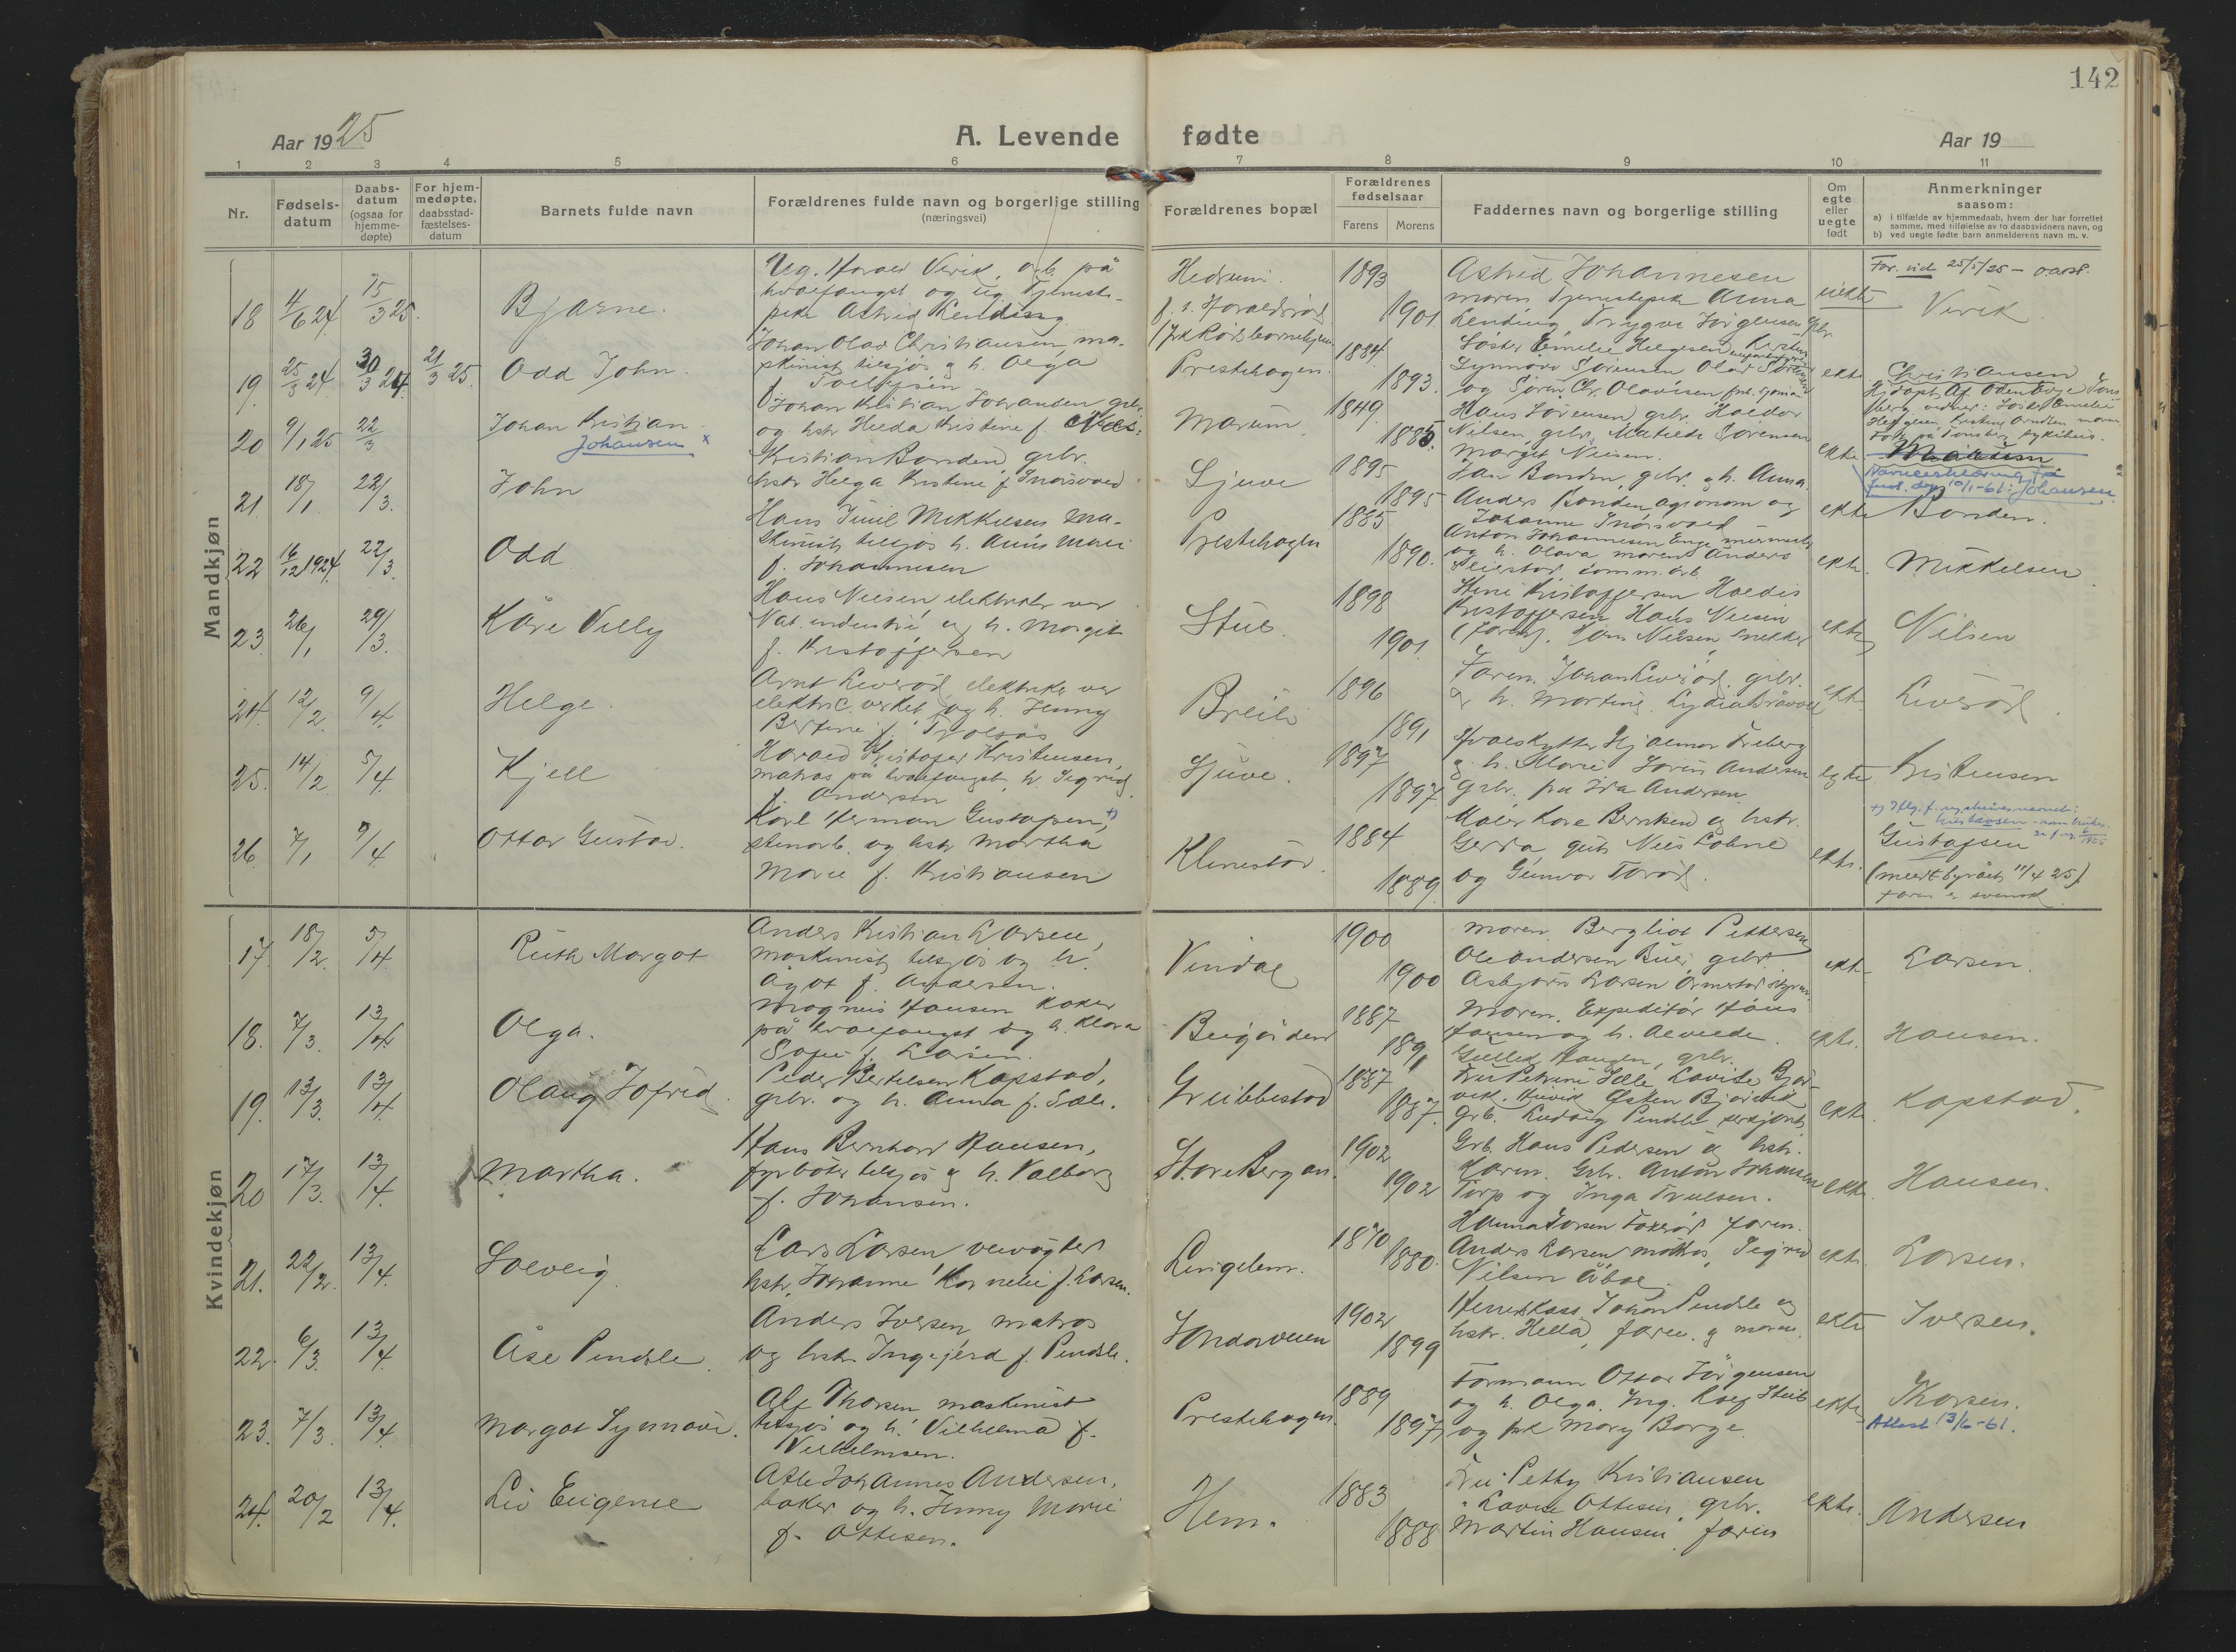 142
Aar 1925
A. Levende fødte
Aar 19
1 2 3 4 5 6 7 8 9 10 11
Nr.
Fødsels-
datum
Daabs-
datum
(ogsaa for
hjemme-
døpte)
For hjem-
medøpte,
daabsstad-
fæstelses-
datum
Barnets fulde navn
Forældrenes fulde navn og borgerlige stilling
(næringsvei)
Forældrenes bopæl
Forældrenes
fødselsaar
Farens Morens
Faddernes navn og borgerlige stilling
Om
egte
eller
uegte
født
Anmerkninger
saasom:
a) i tilfælde av hjemmedaab, hvem der har forrettet
samme, med tilføielse av to daabsvidners navn, og
b) ved uegte fødte barn anmelderens navn m. v.
Mandkjøn
18 4/6 24 15/3 25. Bjarne.
Ug. Harald Virik, arb. på
hvalfangst og ug. Tjeneste-
pike Astrid Kending
Hedrum
1893
1901
Astrid Johannesen
moren Tjenestepike Anna
Kending, Trygve Jörgensen
uekte
Far. vid. 25/5/25
Virik
19. 25/3 24. 30/3 24. 21/3 25. Odd John.
Johan Olav Christiansen ma-
skinist tilsjös g h. Olga
f. Tollefsen
Prestehagen.
1884
1893.
Söster Emelie Helgesen
Synnöve Sörensen Olav Sörensen
og Sören Chr. Olavesen
ekte
Christiansen
20 9/1 25 22/3 Johan Kristian.
Johansen x
Johan Kristian Johansen grbr.
og hstr Hilda Kristine f. Næs.
Marum.
1849
1885.
Hans Sörensen, grbr. Haldor
Nilsen, grbr, Matilde Sörensen
Margit Nilsen.
ekte
Marum
Navneerklæring fra
10/1-61: Johansen.
21. 18/1 22/3. John
Kristian Bonden, grbr.
hstr Helga Kristine f.
Ljuve
1895
1895
Jan Bonden, grbr. g h. Anna.
Anders Bonden, agronom og
Johanne
ekte
Bonden.
22 16/12 1924. 22/3. Odd
Hans Juul Mikkelsen ma-
skinist tilsjös h. Anna Marie
f. Johannesen
Prestehagen
1885
1890.
Anton Johannesen Enge
og h. Olava moren Anders
ekte.
Mikkelsen
23. 26/1 29/3. Kåre Villy
Hans Nilsen, elektriker ver
Nat. industri og h. Margit
f. Kristoffersen
Stub.
1898
1901.
Kristoffersen Haldis
Kristoffersen Hans Nilsen
(faren). Hans Nilsen, snekker
ekte
Nilsen
24. 12/2. 9/4. Helge.
Arnt Liveröd elektriker ver
elektric. verket og h. Jenny
Bertine f.
Breili
1896
1891
Faren. Johan Liveröd. grbr.
g h. Martine. Lydia
ekte.
Liveröd
25. 14/2 5/4. Kjell
Harald Kristofer Kristensen,
matros på hvalfangst h. Sigrid
f. Andersen
Ljuve.
1897
1897.
Hvalskytter Hjalmar Freberg
g. h. Marie Sörine Andersen
grbr. fru Ida Andersen.
egte
Kristensen
26. 7/1 9/4 Ottar Gustav.
Karl Herman Gustafsen, x)
stenarb. og hstr Martha
Marie f. Kristiansen
Klinestad.
1884
1889.
Maler Kåre Berntsen og hstr.
Gerda, Nils
og Gunvor
ekte.
Gustafsen
(meldt byrået 11/4 25).
Faren er svensk
Kvindekjøn
17. 18/2. 5/4. Ruth Margot
Anders Kristian Larsen,
maskinist tilsjös og h.
Ågot f. Andersen.
Vindal
1900
1900
Moren. Bergliot Pettersen
Ole Andersen Buer, grbr.
Asbjörn Larsen
ekte
Larsen.
18. 7/3. 13/4. Olga.
Magnus Hansen kokk
på hvalfangst og h. Klara
Sofie f. Larsen.
Bugården
1887
1891
Moren. Expeditör Hans
Hansen og h. Alvilde.
Haugen, grbr.
ekte.
Hansen.
19. 13/3. 13/4. Olaug Jofrid.
Peder Bertelsen Kapstad,
grbr. og h. Anna f. Sæle.
Gribbestad
1887
1887.
Fru Petrine Sæle Lovise
ekte
Kapstad.
20 17/3. 13/4. Martha.
Hans Bernhard Hansen,
fyrböter tilsjös g h. Valborg
f. Johansen.
Store Bergan.
1902
1902
Grb. Hans Pedersen og hstr.
Karen. Grbr. Anton Johansen
Torp og Inga Trulsen.
ekte
Hansen.
21. 22/2. 13/4. Solveig
Lars Larsen veivogter
hstr. Johanne Kornelie f. Larsen.
Lingelem.
1870
1880.
Hanna Larsen Fokseröd faren.
Anders Larsen matros, Sigrid
Nilsen
ekte.
Larsen.
22. 6/3. 13/4. Åse Pindsle.
Anders Iversen, matros
og hstr Ingejerd f. Pindsle.
Landaveien
1902
1899
Johan Pindsle og
hstr. Hilda, faren. g moren.
ekte
Iversen.
23. 7/3. 13/4. Margot Synnöve.
Alf Thorsen maskinist
tilsjös og h. Vilhelma f.
Vilhelmsen.
Prestehagen.
1889
1897
Formann Ottar Jörgensen
og h. Olga. Ing. Rolf Stub
og frk Mary Borge.
ekte
Thorsen.
Attest 13/6-61.
24. 20/2 13/4. Liv Eugenie
Atle Johannes Andersen,
baker og h. Jenny Marie
f. Ottesen.
Hem.
1883
1888
Fru Petty Kristiansen
" Lovise Ottesen, grbr.
Martin Hansen, faren
ekte.
Andersen